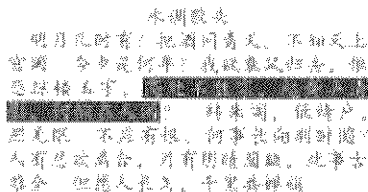 水调歌头
明月几时有?把酒问青天。不知天上
宫阙,今夕是何年?我欲乘风归去,
恐琼楼玉宇,
。转朱阁,低绮户,
照无眠。不应有恨,何事长向别时圆?
人有悲欢离合,月有阴晴圆缺,此事古
难全。但愿人长久,千里共婵娟